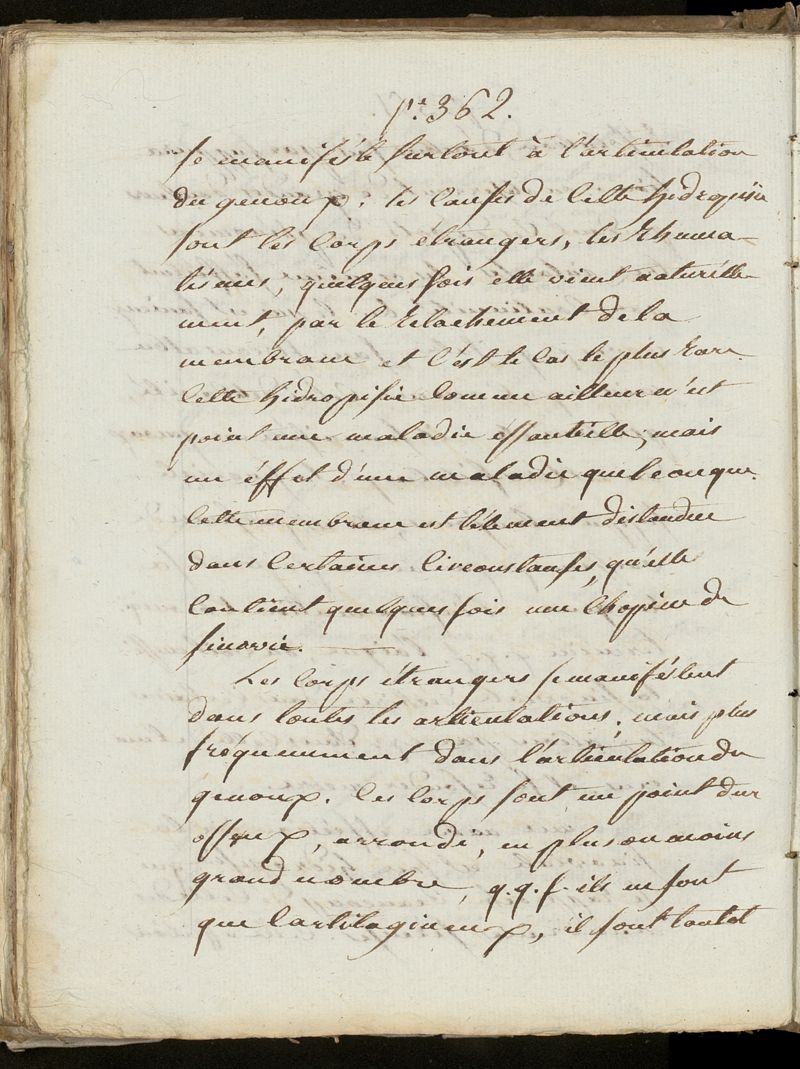 p.e 362.
se manifeste surtout à l'articulation
du genoux; les causes de cette hidropisie
sont les corps etrangers, les Rhuma-
tismes, quelques fois elle vient naturélle-
ment, par le Relachement de la
membrane et c'est le cas le plus Rare
Cette hidropisie comme ailleur n'est
point une maladie éssentielle, mais
un éffet d'une maladie quelconque.
Cette membrane est télement distandue
dans certaines circonstanses, qu'elle
contient quelques fois une chopine de
sinovie.
Les corps étrangers se maniféstent
dans toutes les articulations, mais plus
fréquemment dans l'articulation du
genoux. Ces corps sont un point dur
osseux, arrondi, en plus ou moins
grand nombre, q.q.f. ils ne sont
que Cartilagineux, il sont tantot